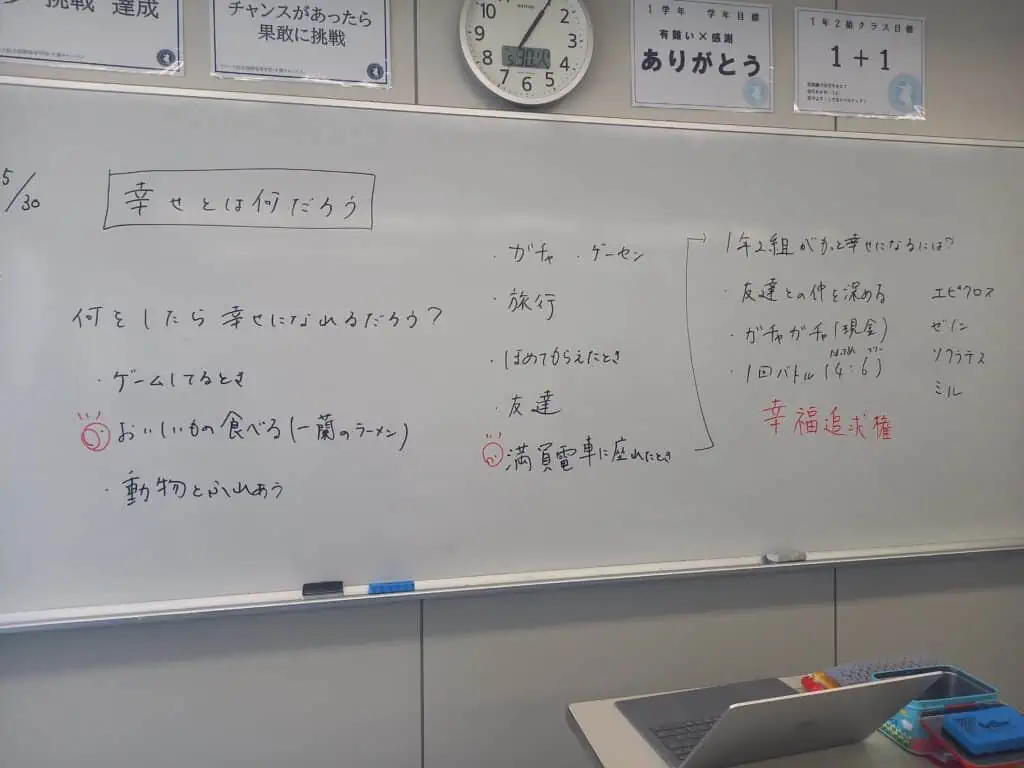 挑戦 達成
チャンスがあったら
果敢に挑戦
10
9
8
7
6
5
4
3
2
5.30
1学年 学年目標
有難い×感謝
ありがとう
1年2組クラス目標
1+1
5/30
幸せとは何だろう
何をしたら幸せになれるだろう?
・ゲームしてるとき
おいしいもの食べる(一蘭のラーメン)
・動物とふれあう
・ガチャ ・ゲーセン
・旅行
・ほめてもらえたとき
・友達
満員電車に座れたとき
1年2組がもっと幸せになるには?
・友達との仲を深める
・ガチャガチャ(現金)
・1回バトル(4:6)
幸福追求権
エピクロス
ゼノン
ソクラテス
ミル